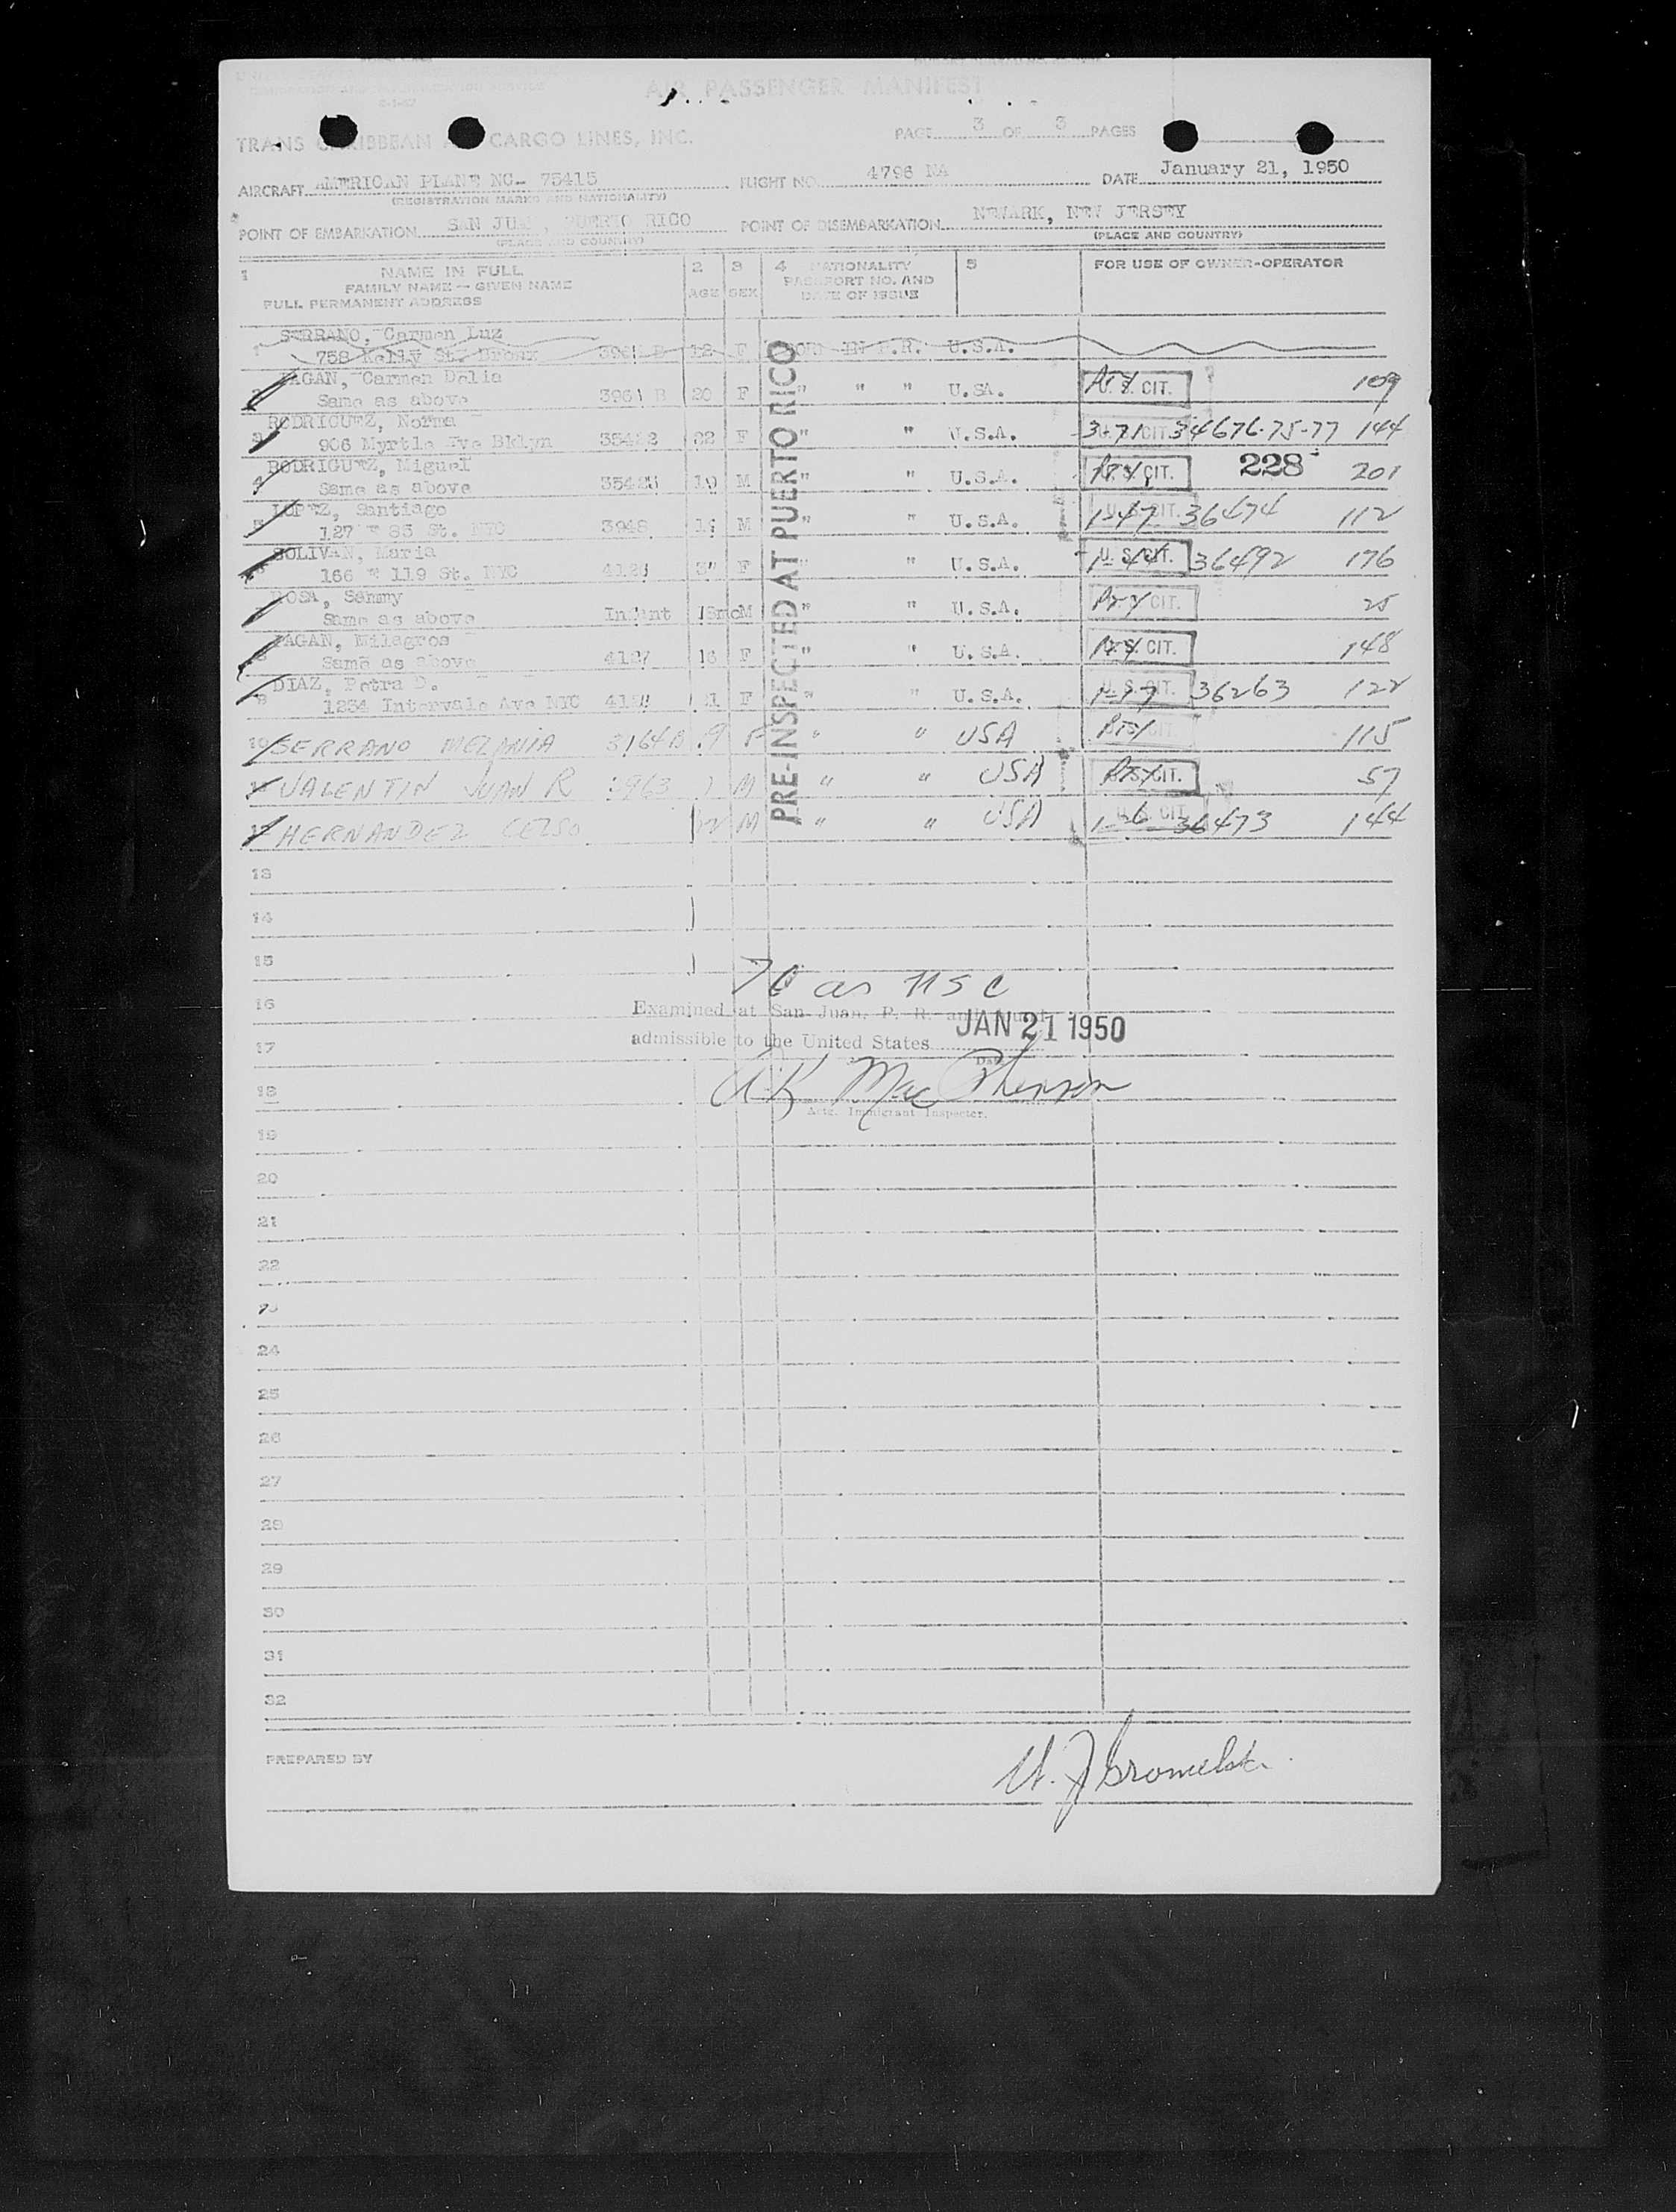 AIR PASSENGER MANIFEST
TRANS CARIBBEAN CARGO LINES, INC.
PAGE 3 OF 3 PAGES
AIRCRAFT AMERICAN PLANE NC- 75415 FLIGHT NO. 4796 NA DATE January 21, 1950
(REGISTRATION MARKS AND NATIONALITY)
POINT OF EMBARKATION SAN JUAN, PUERTO RICO POINT OF DISEMBARKATION NEWARK, NEW JERSEY
(PLACE AND COUNTRY) (PLACE AND COUNTRY)
1 NAME IN FULL 2 3 4 NATIONALITY 5 FOR USE OF OWNER-OPERATOR
FAMILY NAME — GIVEN NAME AGE SEX PASSPORT NO. AND
FULL PERMANENT ADDRESS DATE OF ISSUE
PRE-INSPECTED AT PUERTO RICO
1 SERRANO, Carmen Luz
758 Kelly St. Bronx 12 F IN P.R. U.S.A.
PAGAN, Carmen Delia
Same as above 3961 B 20 F " " " U.SA. U. S. CIT. 109
RODRIGUEZ, Norma
906 Myrtle Ave Bklyn 22 F " " U.S.A. CIT 34676-75-77 144
RODRIGUEZ, Miguel
Same as above 19 M " " U.S.A. CIT. 228 201
LOPEZ, Santiago
127 E 83 St. NYC 3948 M " " U.S.A. 1-47 U. S. CIT. 36474 112
SOLIVAN, Maria
166 E 119 St. NYC F " " U.S.A. U. S. CIT. 36492 176
ROSA, Sammy
Same as above Infant M " " U.S.A. CIT. 25
PAGAN, Milagros
Same as above 4127 16 F " " U.S.A. U.S. CIT. 148
DIAZ, Petra D.
1234 Intervale Ave NYC F " " U.S.A. U. S. CIT. 36263 122
10 SERRANO MELANIA 3164B 9 F " " USA CIT. 115
VALENTIN JUAN R 3963 M " " USA U.S. CIT. 57
12 HERNANDEZ CELSO 22 M " " USA CIT. 36473 144
13
14
15
70 as USC
16 Examined at San Juan, P. R. and
JAN 21 1950
17 admissible to the United States
Date
18 A K MacPherson
Actg. Immigrant Inspector.
19
20
21
22
23
24
25
26
27
28
29
30
31
32
PREPARED BY